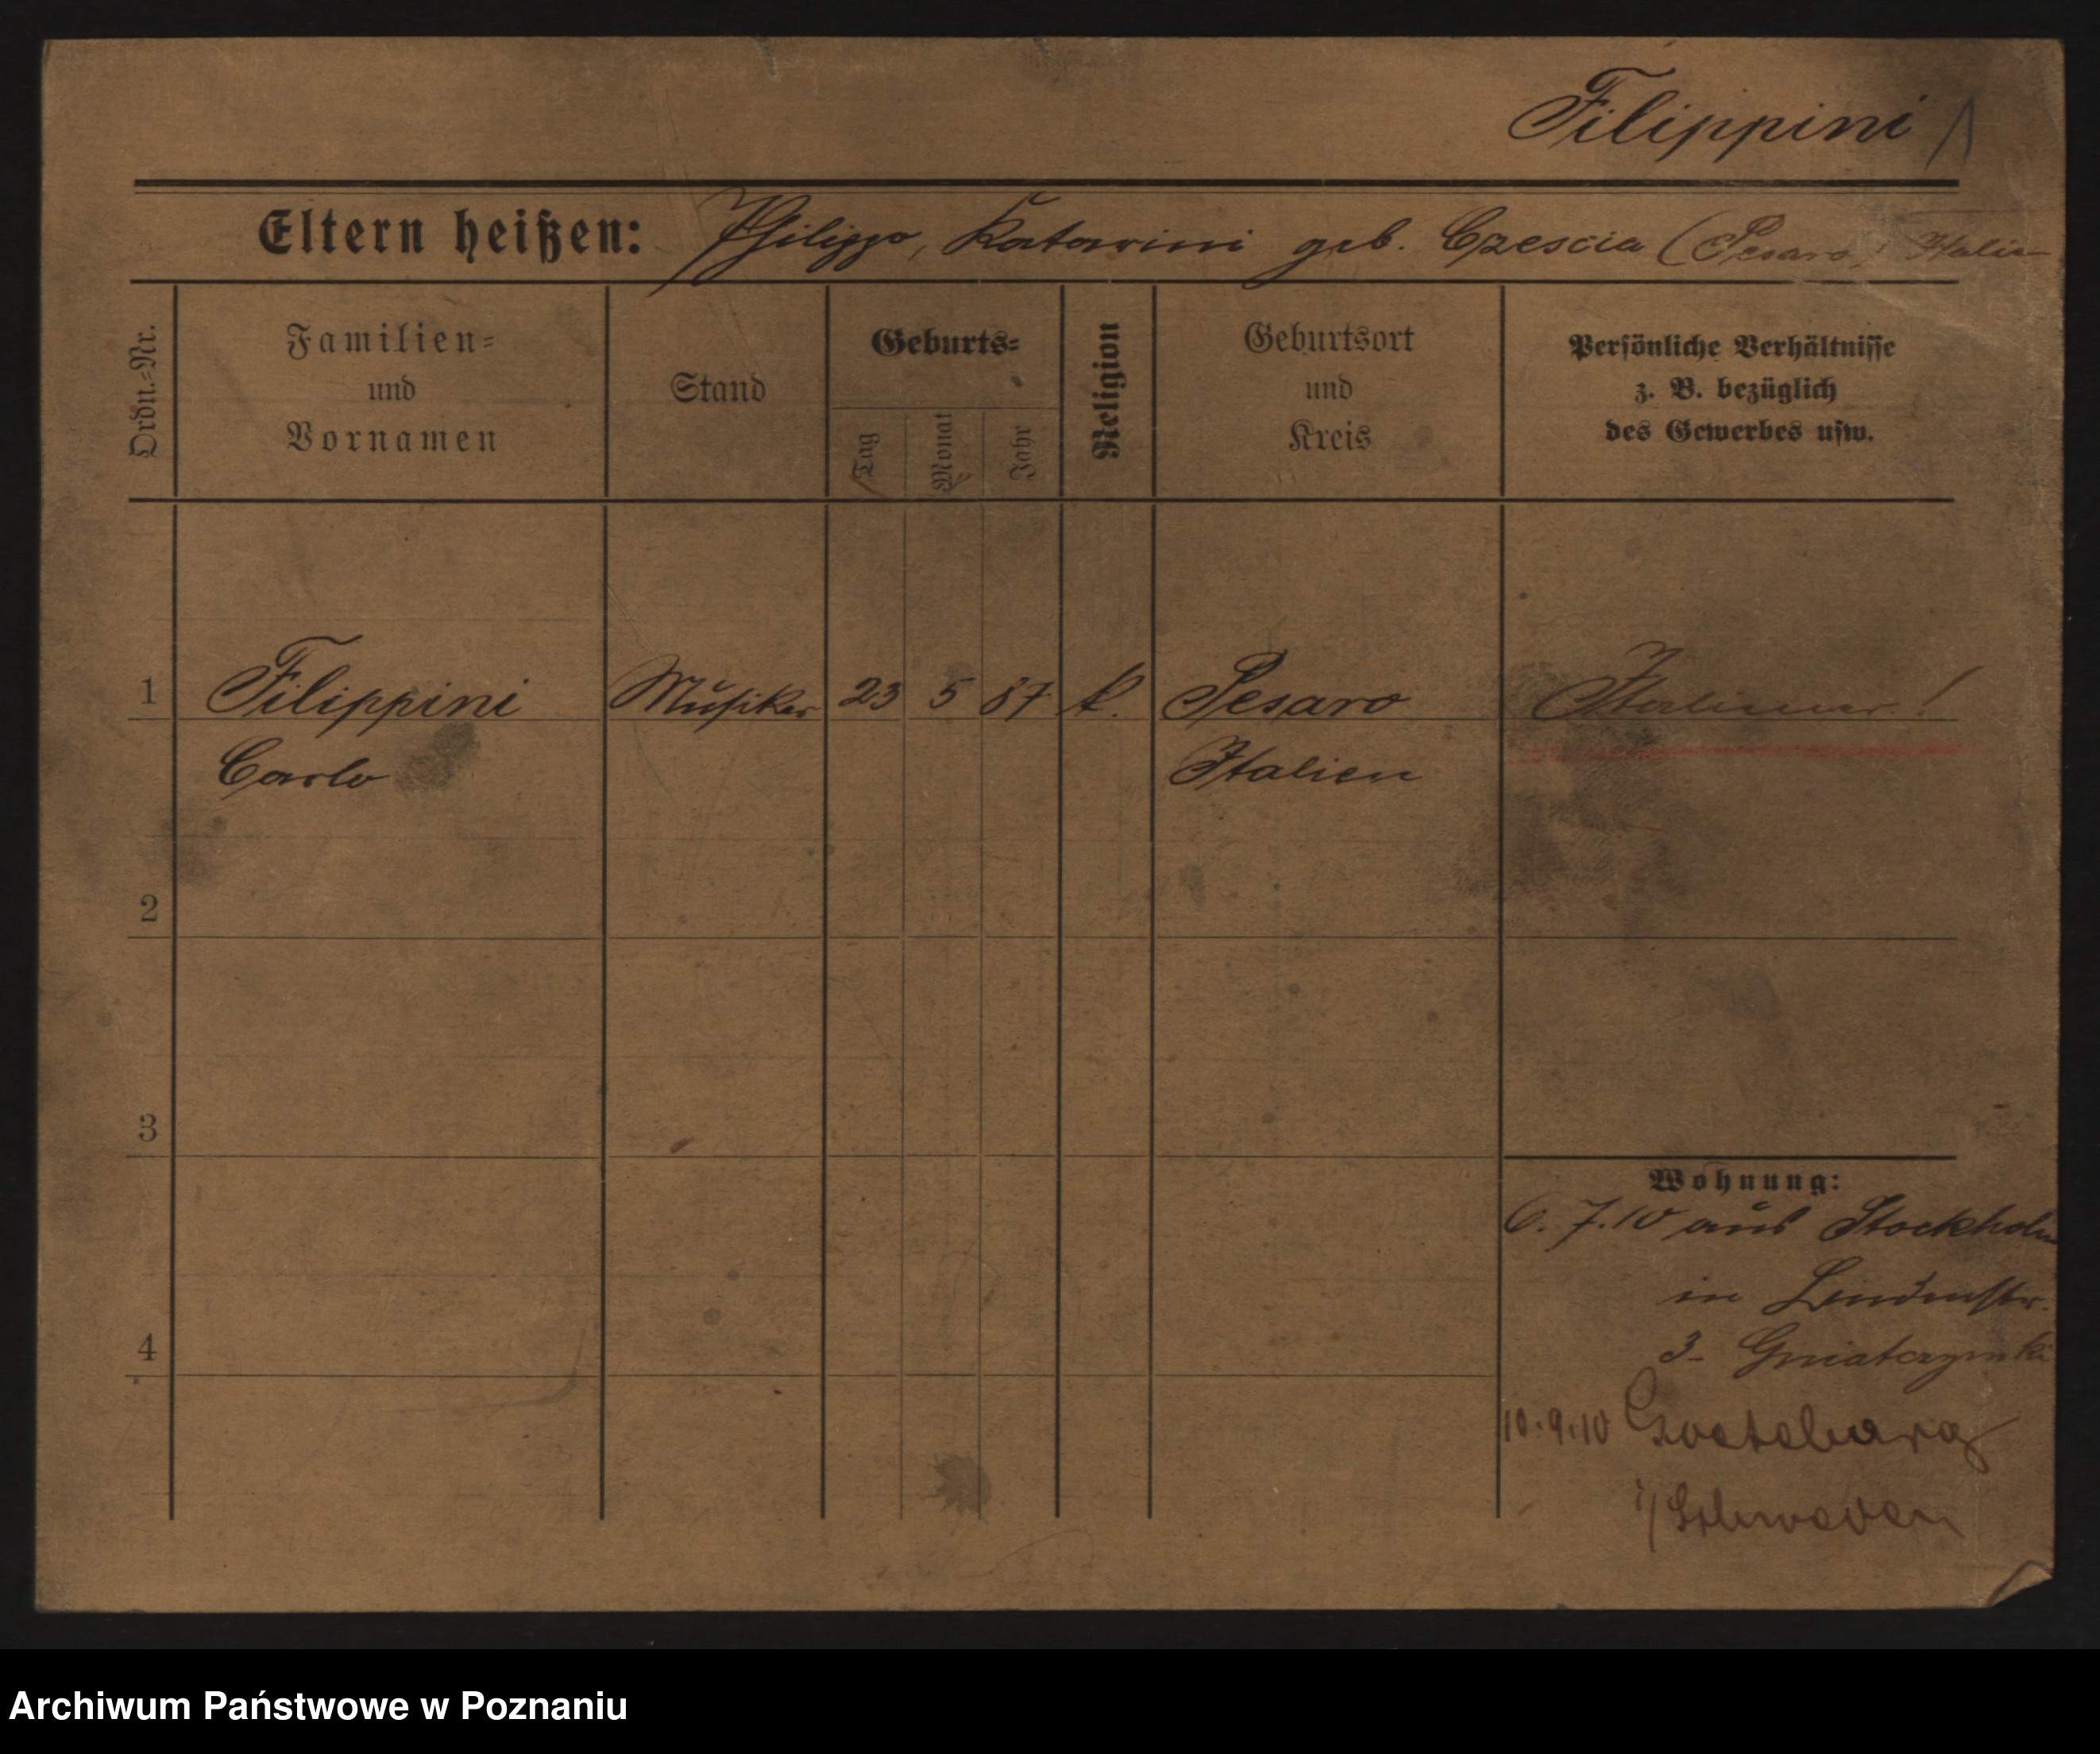 Filippini
Eltern heißen: Philippo, Katarini geb. Czescia (Pesaro, Italien
Ordn.-Nr.
Familien-
und
Vornamen
Stand
Geburts-
Tag
Monat
Jahr
Religion
Geburtsort
und
Kreis
Persönliche Verhältnisse
z. B. bezüglich
des Gewerbes usw.
1 Filippini Musiker 23 5 87 k. Pesaro Italiener!
Carlo Italien
2
3
Wohnung:
6.7.10 aus Stockholm
in Lindenstr.
4
3- Gniatczynski
10.9.10 Goeteborg
i/ Schweden
Archiwum Państwowe w Poznaniu